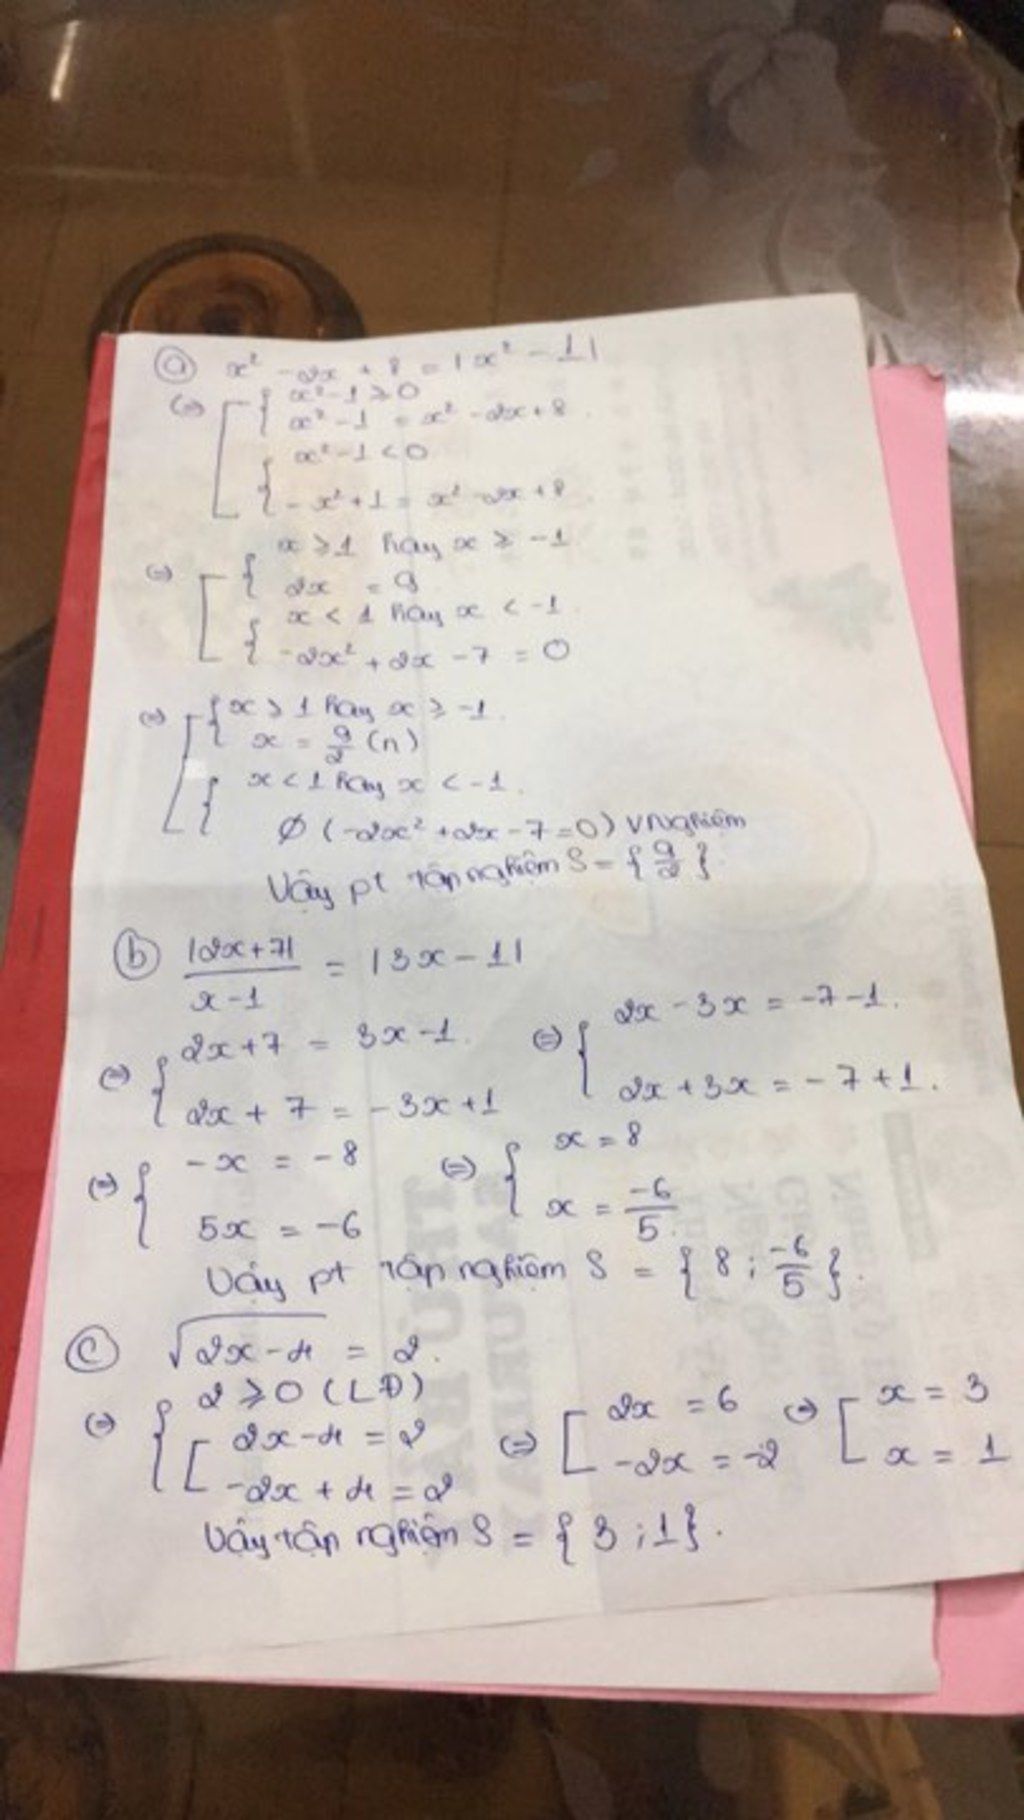 a) x² - 2x + 8 = |x² - 1|
(=) [ { x² - 1 ≥ 0
x² - 1 = x² - 2x + 8
{ x² - 1 < 0
- x² + 1 = x² - 2x + 8
(=) [ { x ≥ 1 hay x ≥ -1
2x = 9
{ x < 1 hay x < -1
-2x² + 2x - 7 = 0
(=) [ { x ≥ 1 hay x ≥ -1
x = 9/2 (n)
{ x < 1 hay x < -1
∅ (-2x² + 2x - 7 = 0) Vnghiệm
Vậy pt tập nghiệm S = {9/2}
b) |2x+7|/(x-1) = |3x - 1|
(=) { 2x + 7 = 3x - 1 (=) { 2x - 3x = -7 - 1.
2x + 7 = -3x + 1 2x + 3x = -7 + 1.
(=) { -x = -8 (=) { x = 8
5x = -6 x = -6/5
Vậy pt tập nghiệm S = { 8 ; -6/5 }.
c) √(2x-4) = 2.
(=) { 2 ≥ 0 (LĐ)
[ 2x-4 = 2 (=) [ 2x = 6 (=) [ x = 3
-2x + 4 = 2 -2x = -2 x = 1
Vậy tập nghiệm S = { 3 ; 1 }.